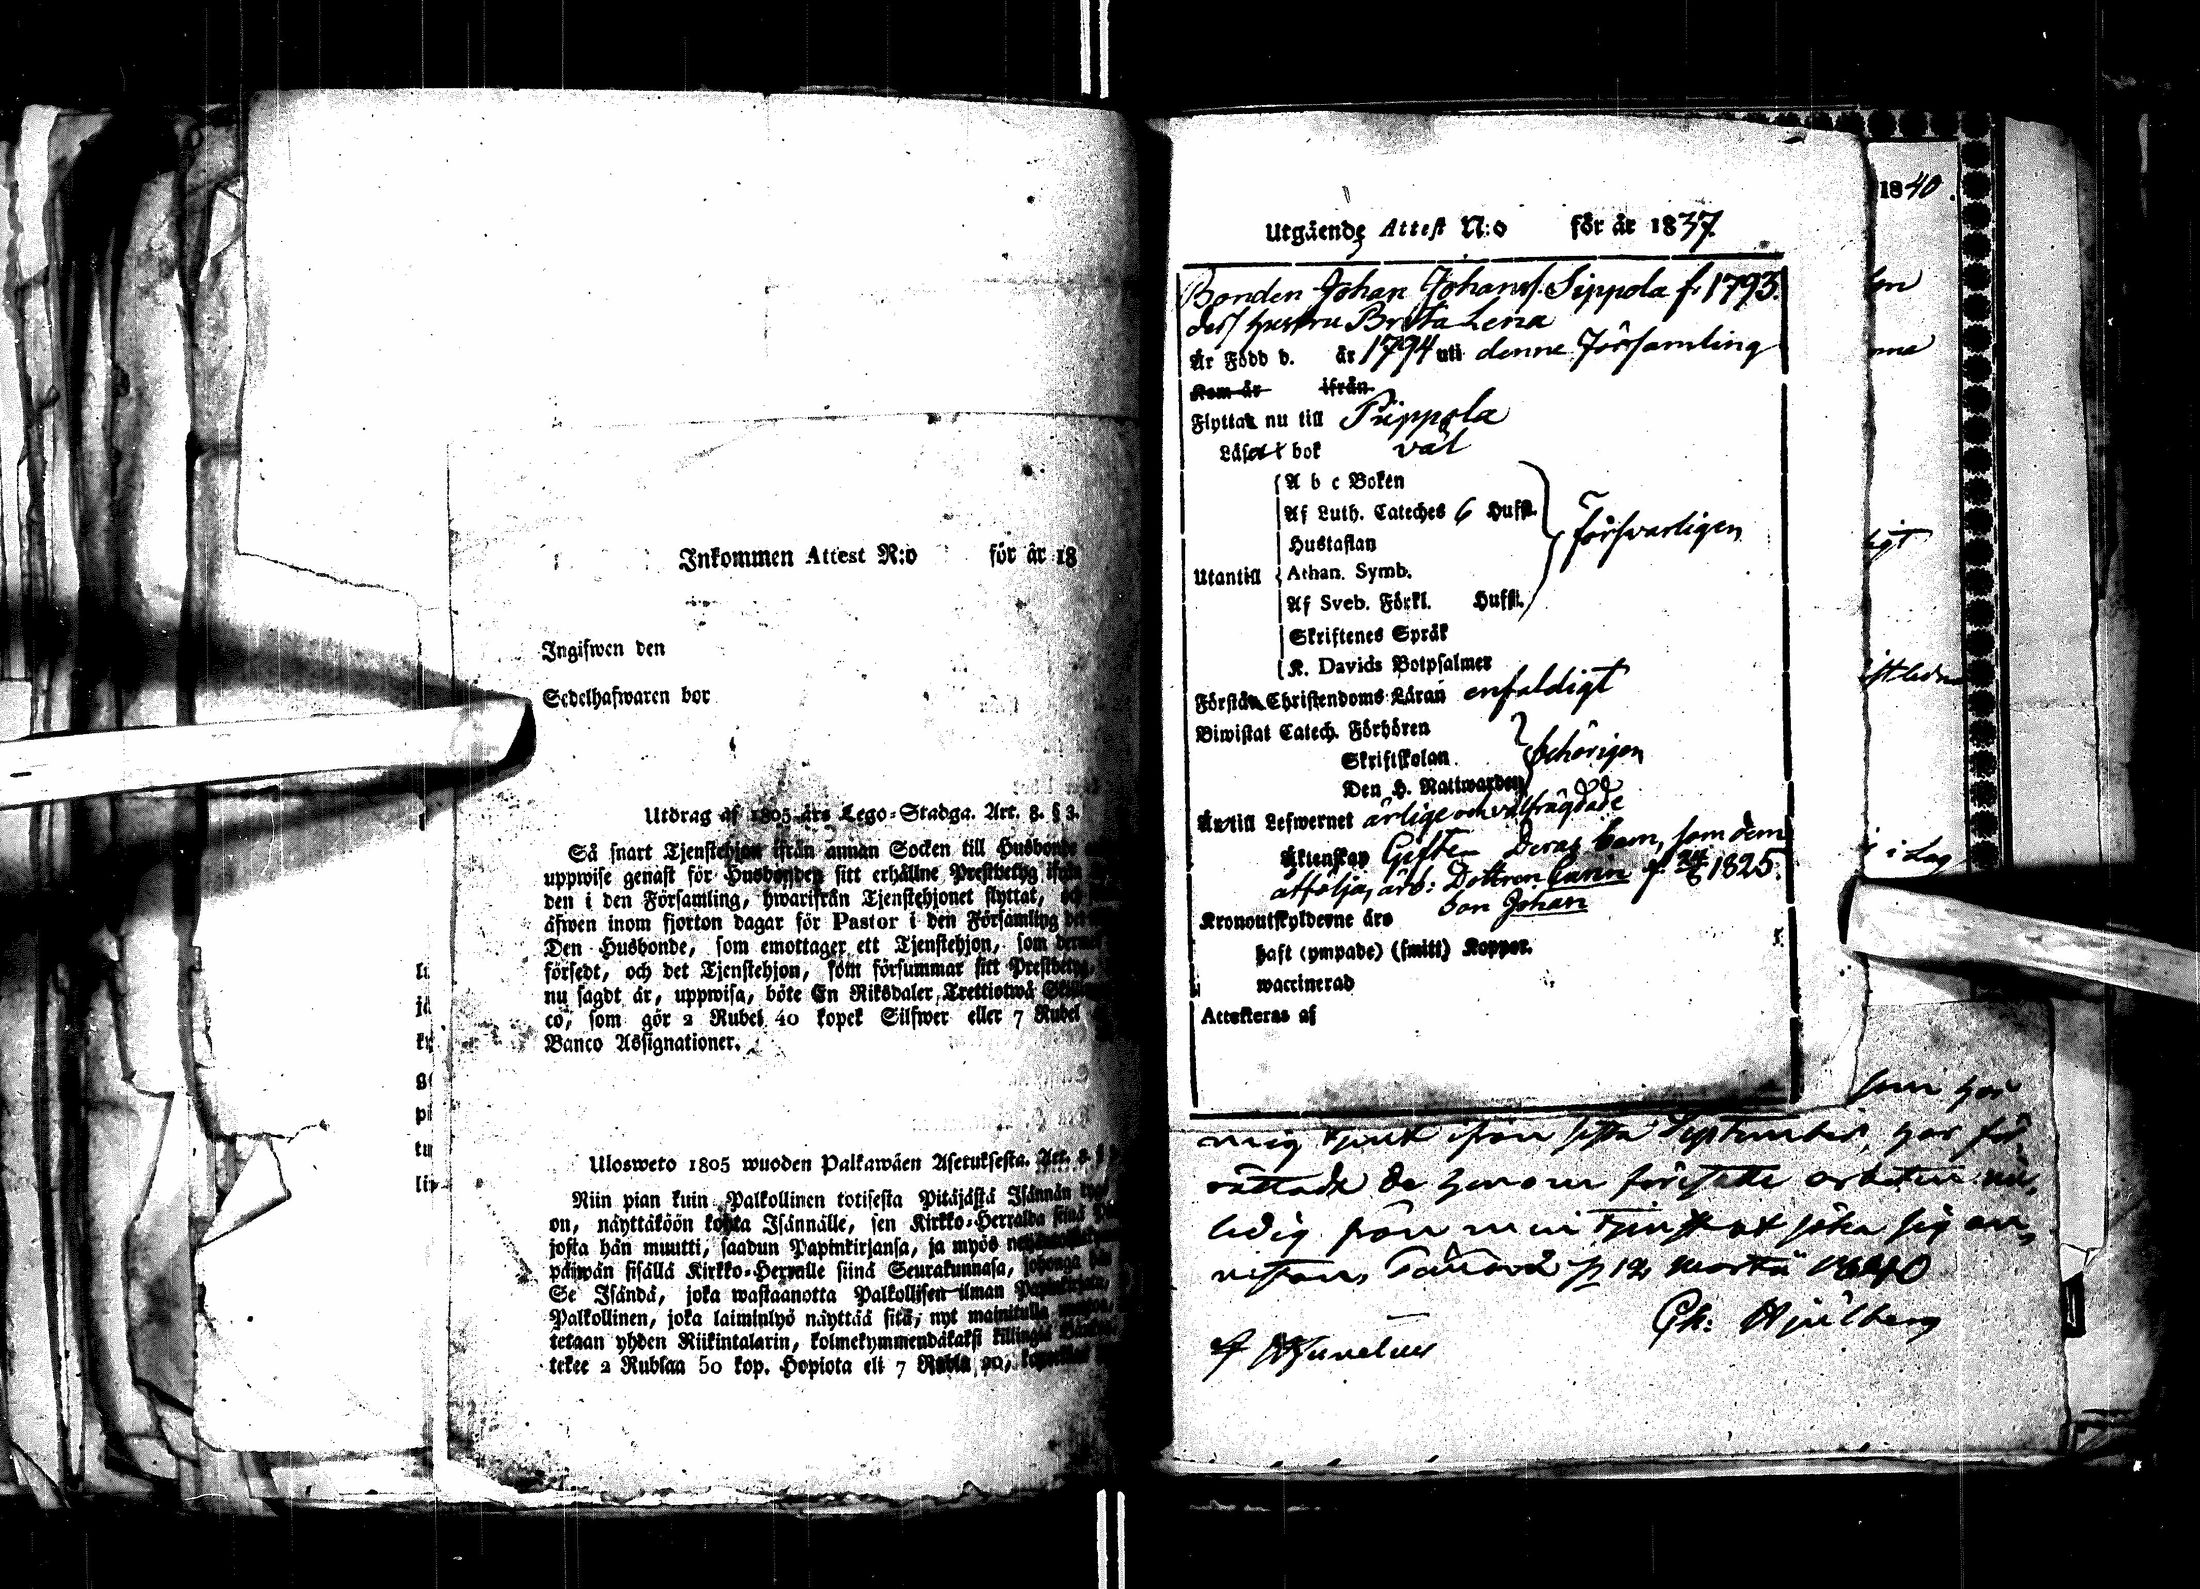 Inkommen Attest N:o för år 18
Ingifwen den
Sedelhafwaren bor
Utdrag af 1805 års Lego-Stadga. Art. 8. § 3.
Så snart Tjenstehjon ifrån annan Socken till Husbonde
uppwise genast för Husbonden sitt erhållne Prestbetyg
den i den Församling, hwarifrån Tjenstehjonet flyttat,
äfwen inom fjorton dagar för Pastor i den Församling
Den Husbonde, som emottager ett Tjenstehjon, som
försedt, och det Tjenstehjon, som försummar sitt Prestbetyg,
nu sagdt är, uppwisa, böte En Riksdaler, Trettiotwå
co, som gör 2 Rubel 40 kopek Silfwer eller 7 Rubel
Banco Assignationer.
Ulosweto 1805 wuoden Palkawäen Asetuksesta. Art. 8. §
Niin pian kuin Palkollinen toisesta Pitäjästä Isännän
on, näyttäköön kohta Isännälle, sen Kirkko-Herralda siinä
josta hän muutti, saadun Papinkirjansa, ja myös
päiwän sisällä Kirkko-Herralle siinä Seurakunnasa, johonga
Se Isändä, joka wastaanotta Palkollisen ilman
Palkollinen, joka laiminlyö näyttää sitä, nyt mainitulla
tetaan yhden Riikintalarin, kolmekymmendäkaksi killingiä
tekee 2 Rublaa 50 kop. Hopiota eli 7 Rubla 20,
Utgående Attest N:o för år 1837
Bonden Johan Johans. Sippola f. 1793.
dess hustru Brita Lena
Är Född d. år 1794 uti denne Församling
Kom år ifrån
Flyttar nu till Piippola
Läser i bok väl
A b c Boken
Af Luth. Cateches 6 Hufst.
Hustaflan
försvarligen
Utantill Athan. Symb.
Af Sveb. Förkl. Hufst.
Skriftenes Språk
K. Davids Botpsalmer
Förstår Christendoms Läran enfaldigt
Biwistat Catech. Förhören
Skriftskolan behörigen
Den H. Nattwarden
Är till Lefwernet ärlige och välfrägdade
Äktenskap Gifte. Deras barn, som dem
åtfölja, äro: Dottren Carin f. 24/6 1825.
Son Johan
Kronoutskylderne års
haft (ympade) (smitt) Koppor.
waccinerad
Attesteras af
1840.
i Lag
som har
mig tjent ifrån sista September, har för-
rättade de honom föresatte arbeten
ledig från min tjenst at söka sig an,
1840